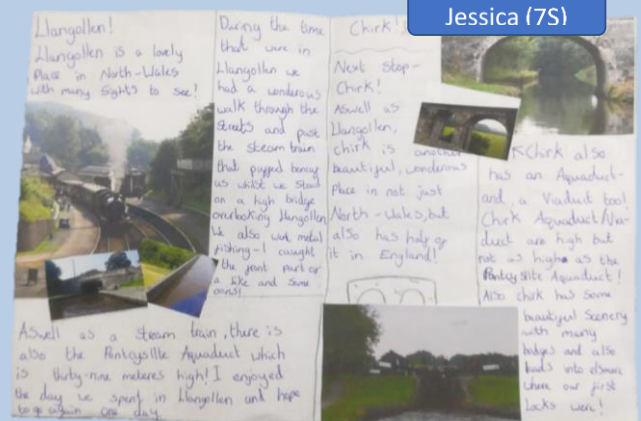 Jessica (7S)
Llangollen!
Llangollen is a lovely
Place in North-Wales
with many sights to see!
During the time
that were in
Llangollen we
had a wonderous
walk through the
streets and past
the steam train
that puffed beneath
us whilst we stood
on a high bridge
overlooking Llangollen
We also went metal
fishing-I caught
the front part of
a bike and some
cans!
Aswell as a steam train, there is
also the Pontcysllte Aquaduct which
is thirty-nine meteres high! I enjoyed
the day we spent in Llangollen and hope
to go again one day.
Chirk!
Next stop-
Chirk!
Aswell as
Llangollen,
chirk is another
beautiful, wonderous
Place in not just
North-Wales, but
also has half of
it in England!
Chirk also
has an Aquaduct-
and a Viaduct too!
Chirk Aquaduct/Via-
duct are high but
not as high as the
Pontcysllte Aquaduct!
Also chirk has some
beautiful Scenery
with many
bridges and also
leads into
where our first
Locks were!